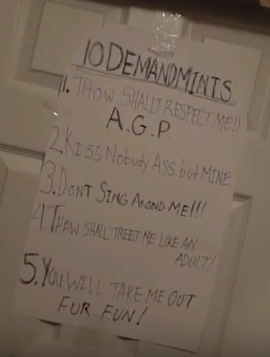 10 DEMANDMINTS
1. THOW SHALLT RESPECT ME!!
A.G.P.
2. KISS NOBUDY ASS but MINE
3. DONT SING AROND ME!!!
4. THAW SHALL TREET ME LIKE AN
ADULT!
5. YOU WILL TAKE ME OUT
FUR FUN!